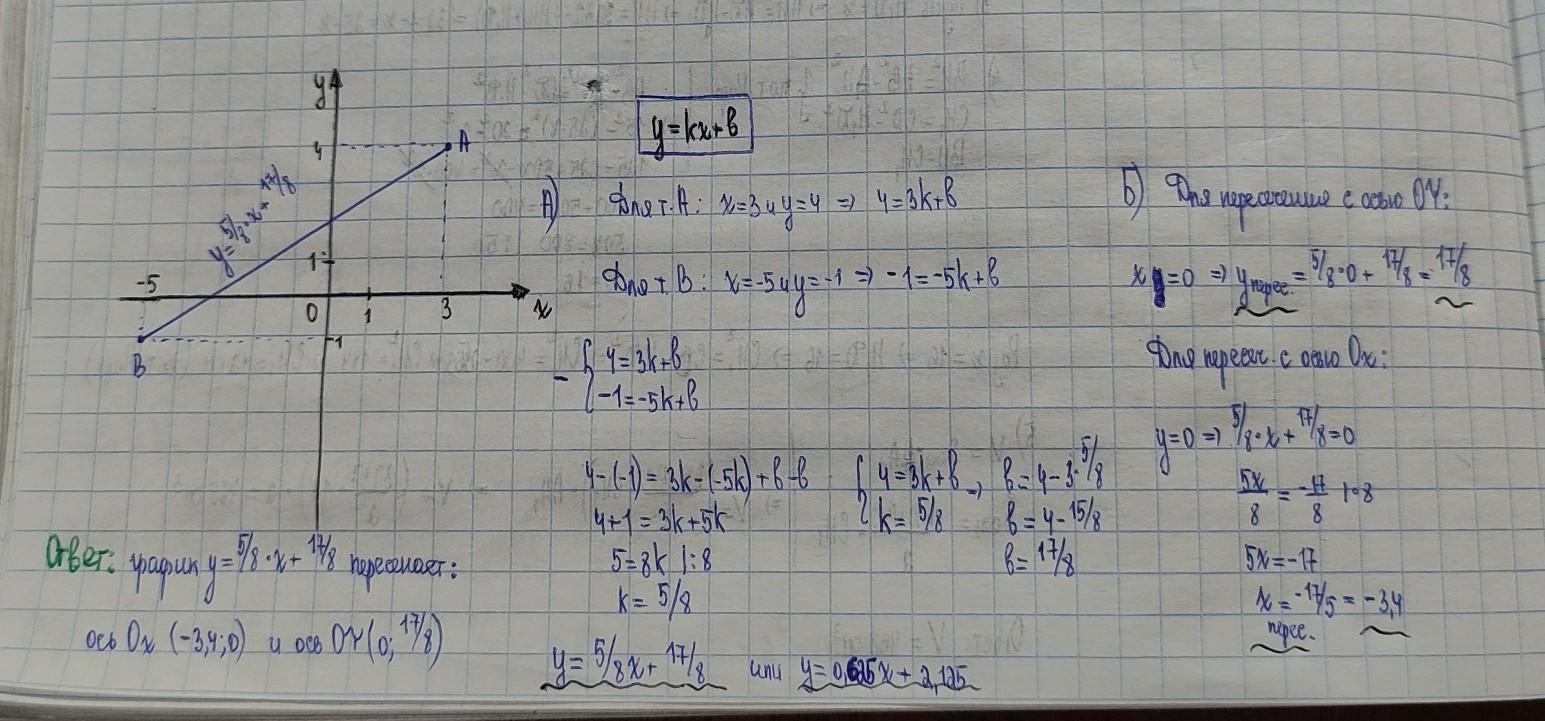 y
4
A
y = 5/8·x + 17/8
1
-5
0
1
3
x
-1
B
y = kx + b
А) Для т. А: x=3 и y=4 => 4=3k+b
Для т. В: x=-5 и y=-1 => -1=-5k+b
- { 4=3k+b
-1=-5k+b
4-(-1) = 3k-(-5k)+b-b
4+1=3k+5k
5=8k |:8
k= 5/8
{ 4=3k+b
k= 5/8
=> b=4-3·5/8
b=4-15/8
b= 17/8
y= 5/8x+ 17/8 или y=0,625x+2,125
Б) Для пересечения с осью OY:
x=0 => y перес. = 5/8·0+ 17/8 = 17/8
Для пересеч. с осью Ox:
y=0 => 5/8·x+ 17/8=0
5x/8 = -17/8 |·8
5x=-17
x перес. = -17/5 = -3,4
Ответ: график y= 5/8·x+ 17/8 пересекает:
ось Ox (-3,4;0) и ось OY (0; 17/8)